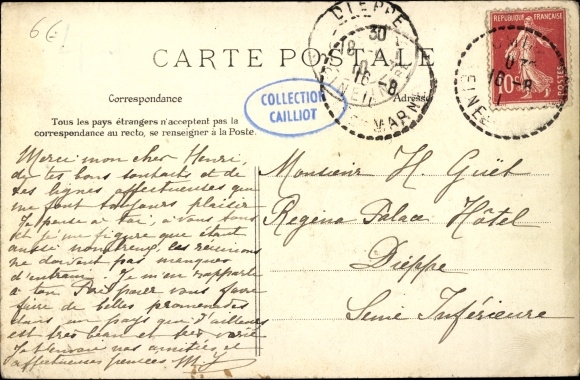 6€
DIEPPE
30
16-8
REPUBLIQUE FRANÇAISE
10c
POSTES
CARTE POSTALE
Correspondance
Adresse
COLLECTION
CAILLIOT
Tous les pays étrangers n'acceptent pas la
correspondance au recto, se renseigner à la Poste.
Merci mon cher Henri,
de tes bons souhaits et de
tes lignes affectueuses qui
me font toujours plaisir
Je pense à toi, à vous tous
et je me figure que étant
aussi nombreux, les réunions
ne doivent pas manquer
d'entrain. Je m'en rapporte
à ton Père pour vous faire
faire de belles promenades
dans un pays que d'ailleurs
est très beau et très varié
nos amitiés et
affectueuses pensées
Monsieur H. Guët
Regina Palace Hôtel
Dieppe
Seine Inférieure